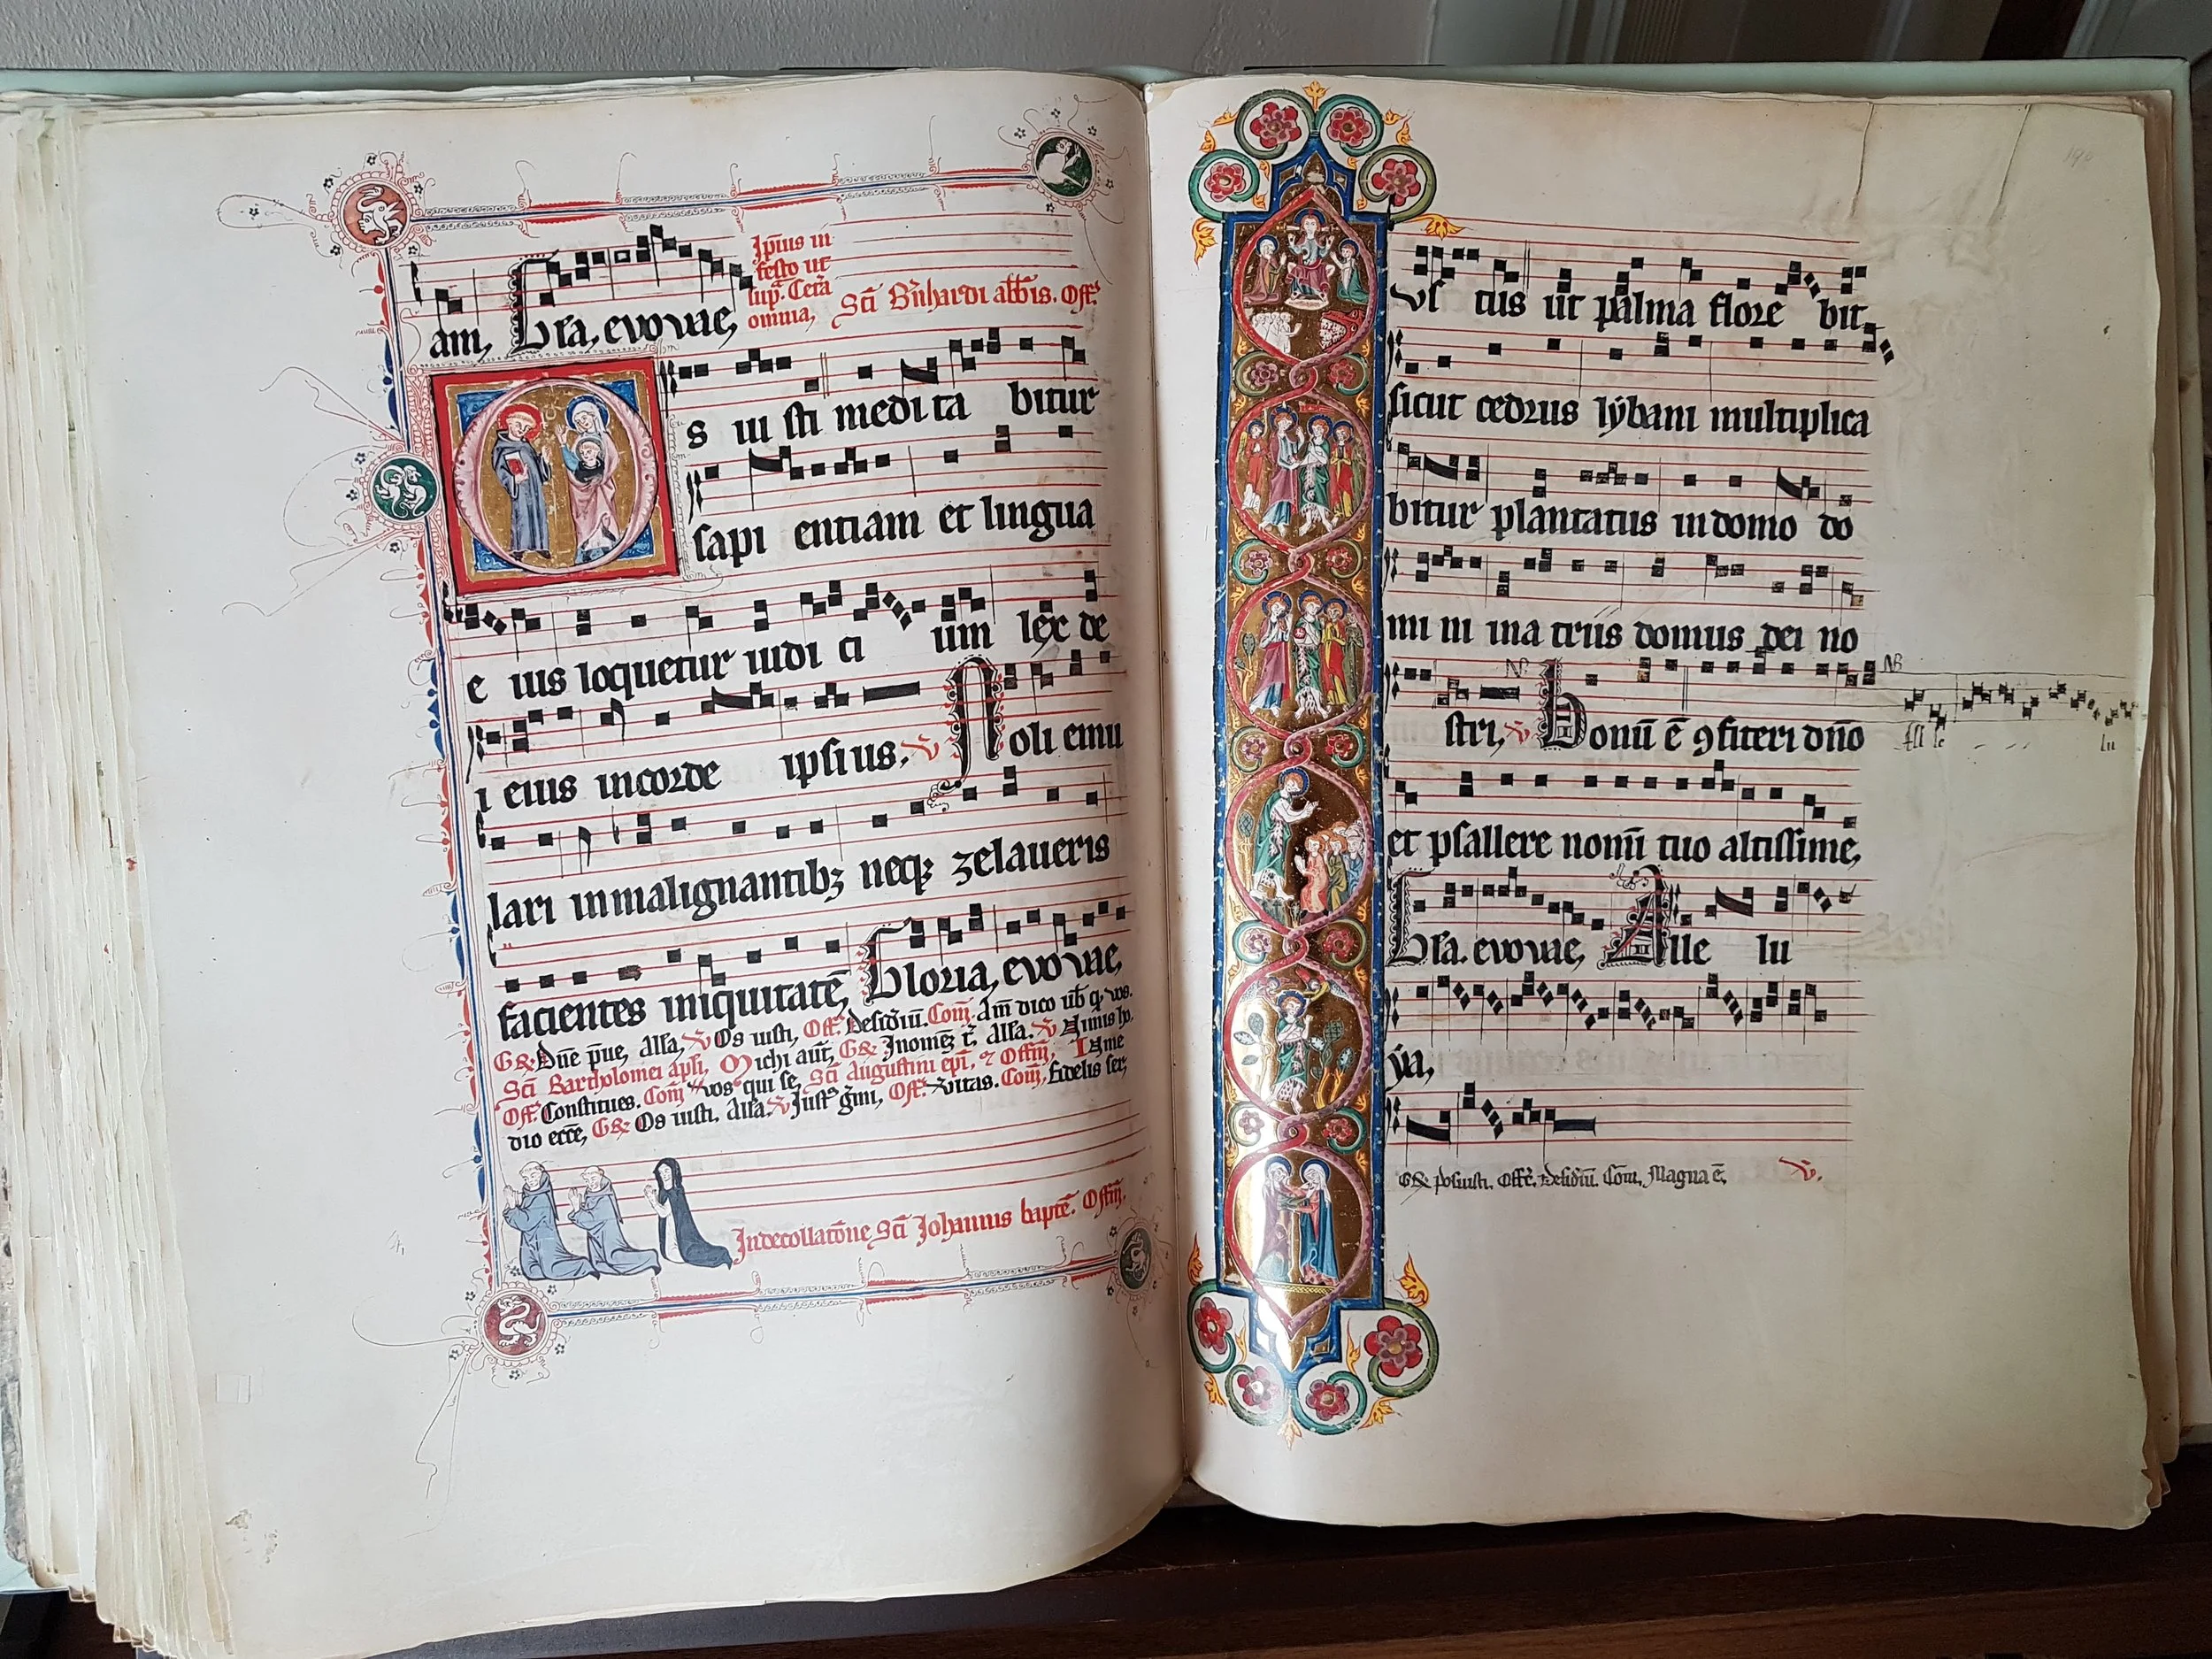 am, Gl̄a, evovae,
Ip̄ius in
festo ut
sup͛. Cet͛a
omnia,
Sc̄i B͛nhardi abb̄is. Off͛.
Os iu sti medi ta bitur
sapi entiam et lingua
e ius loquetur iudi ci um lex de
i eius in corde ipsi us, V̄ Noli emu
lari in malignantibꝫ neqꝫ zelaueris
facientes iniquitatē, Gloria, evovae,
G℟ Dn̄e p̄ue, All̄a, V̄ Os iusti, Off͛. Desid͛iū. Com̄. Am̄ dico ub̄ q, vos.
Sc̄i Bartholomei apl̄i, Michi aūt, G℟ In om̄ez t͛. All̄a. V̄ Nimis ho.
Off͛. Constitues. Com̄ Vos qui se, Sc̄i Augustini ep̄i, ⁊ Off̄m, In me
dio ecc̄e, G℟ Os iusti, All̄a. V̄ Just g͛mi, Off͛. V͛itas. Com̄, Fidelis ser,
In decollatōne Sc̄i Johannis baptē. Off̄m,
190
us tus ut palma flore bit,
sicut cedrus lẏbani multiplica
bitur plantatus in domo do
mi ni in a triis domus dei no
stri, V̄ Bonū ē ꝯfiteri dn̄o
NB
All le lu
et psallere nom̄i tuo altissime,
Gl̄a. evovae, Alle lu
ẏa,
G℟ Posuisti. Off͛. Desid͛iū. Com̄. Magna ē, V̄.